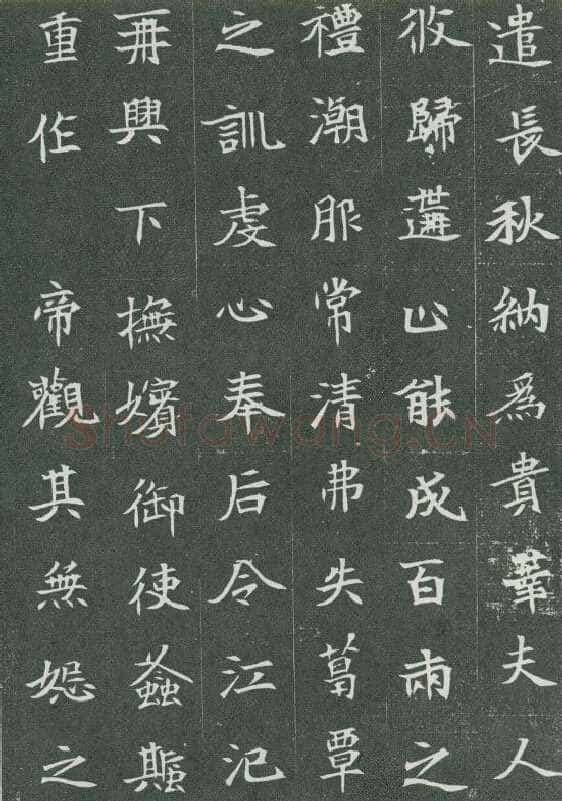 遣長秋納爲貴華夫人
攸歸遘止能成百兩之
禮潮服常清弗失葛覃
之訓虔心奉后令江汜
再興下撫嬪御使螽蟴
重作 帝觀其無怨之
Shufawang.CN